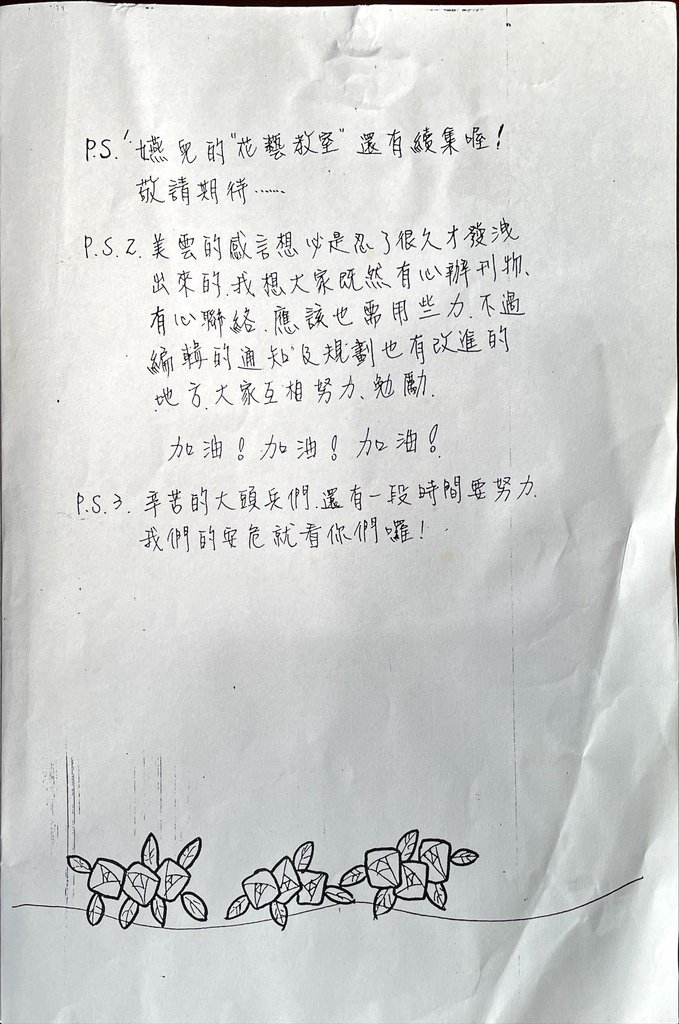 P.S.1 嬿兒的"花藝教室"還有續集喔!
敬請期待……
P.S.2. 美雲的感言想必是忍了很久才發洩
出來的.我想大家既然有心辦刊物、
有心聯絡.應該也需用些力.不過
編輯的通知及規劃也有改進的
地方.大家互相努力、勉勵.
加油!加油!加油!
P.S.3. 辛苦的大頭兵們.還有一段時間要努力.
我們的安危就看你們囉!